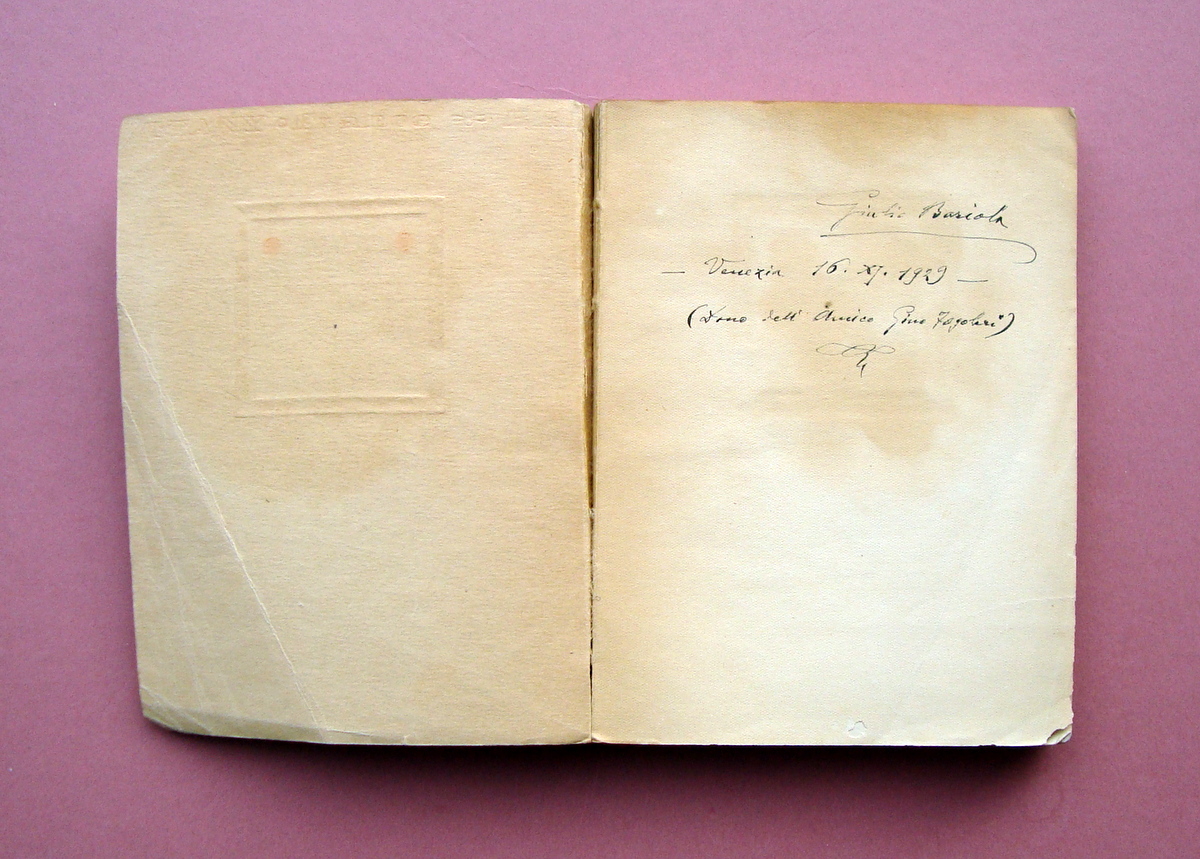 Giulio Bariola
— Venezia 16. XI. 1929 —
(Dono dell' Amico Gino Fogolari)